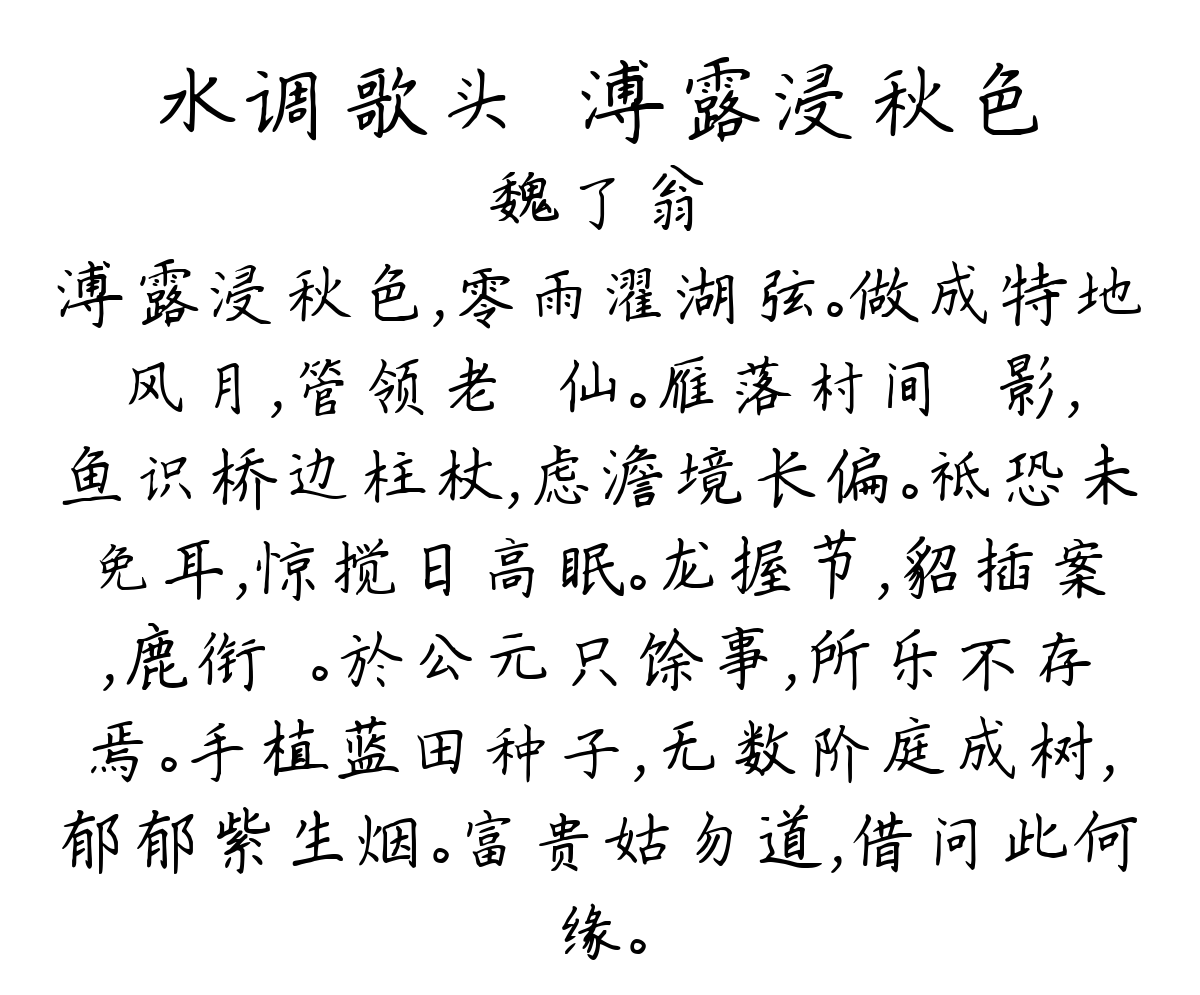 水调歌头 溥露浸秋色
魏了翁
溥露浸秋色,零雨濯湖弦。做成特地
风月,管领老 仙。雁落村间 影,
鱼识桥边柱杖,虑澹境长偏。祗恐未
免耳,惊搅日高眠。龙握节,貂插案
,鹿衔 。於公元只馀事,所乐不存
焉。手植蓝田种子,无数阶庭成树,
郁郁紫生烟。富贵姑勿道,借问此何
缘。